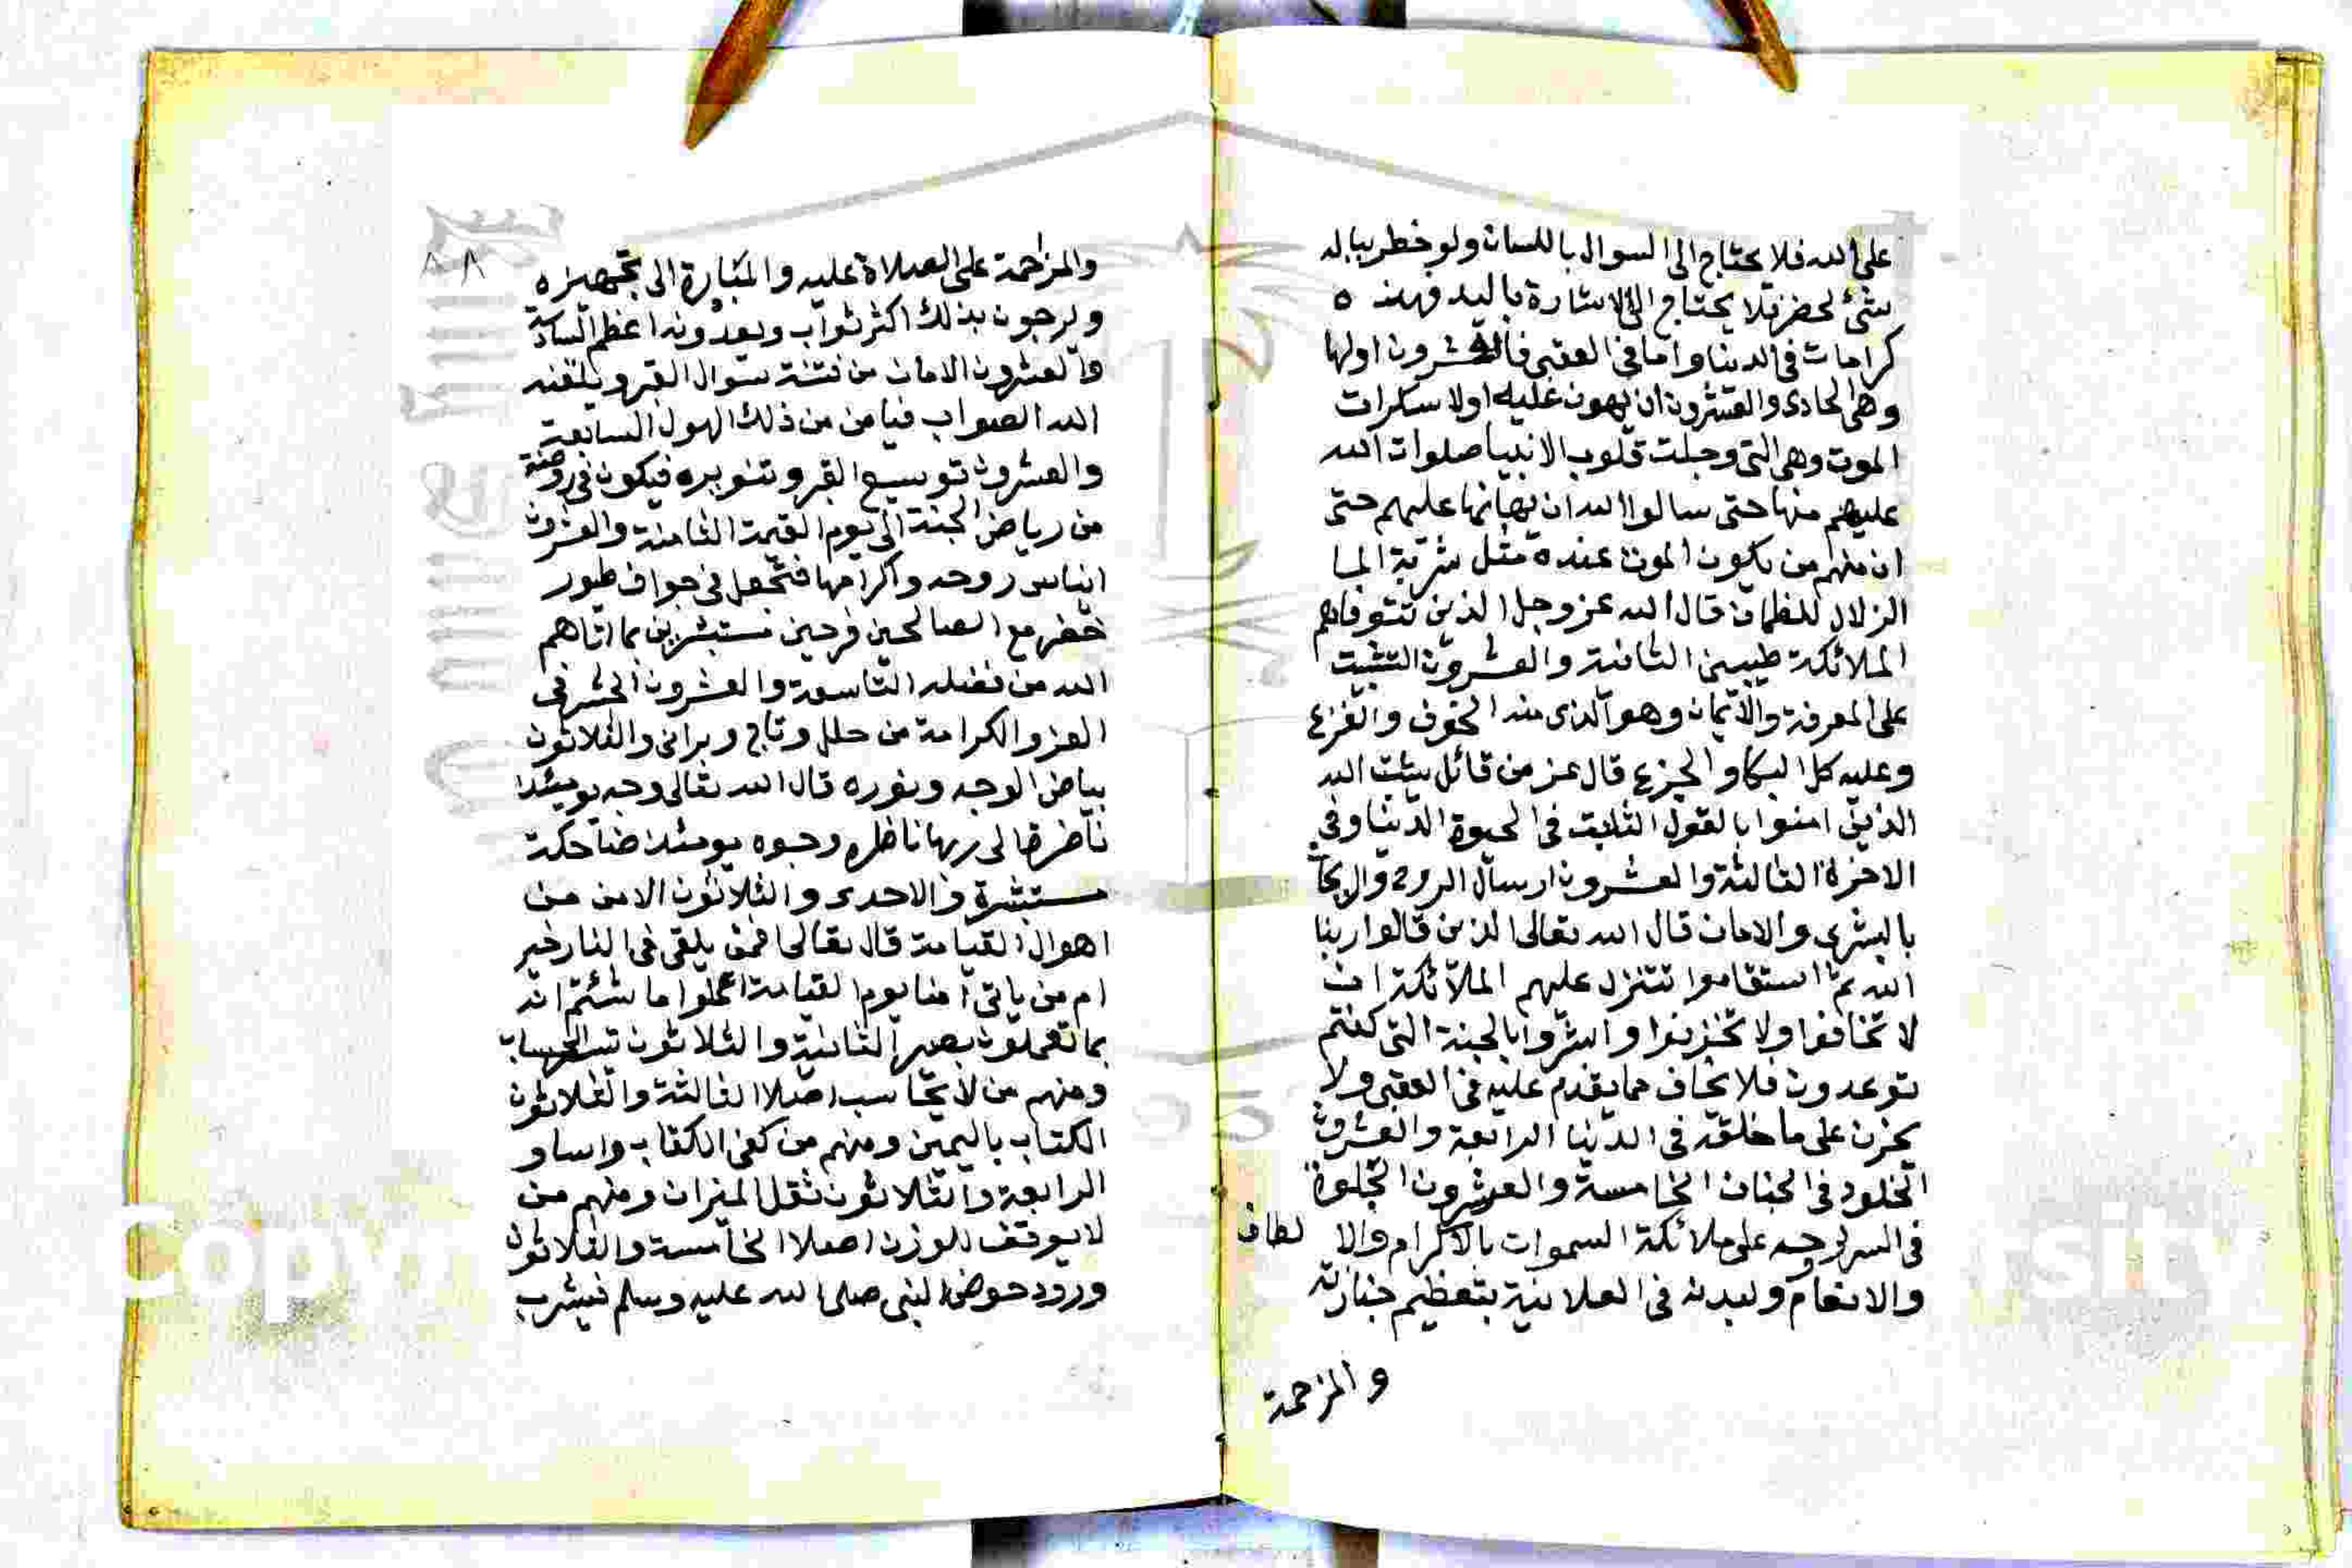 على الله فلا يحتاج الى السوال باللسان ولو خطر بباله
شئ لحضر فلا يحتاج الى الاشارة باليد فهذه ه
كرامات في الدنيا واما في العقبى فالعشرون اولها
وهي الحادى والعشرون ان يهون عليه اولا سكرات
الموت وهي التى وجلت قلوب الانبيا صلوات الله
عليهم منها حتى سالوا الله ان يهانها عليهم حتى
ان منهم من يكون الموت عنده مثل شربة الما
الزلال للظمان قال الله عز وجل الذين تتوفاهم
الملائكة طيبين الثانية والعشرون التثبيت
على المعرفة والايمان وهو الذى منه الخوف والفزع
وعليه كل البكا والجزع قال عز من قائل يثبت الله
الذين امنوا بالقول الثابت فى الحيوة الدنيا وفى
الاخرة الثالثة والعشرون ارسال الروح والريحان
بالبشرى والامان قال الله تعالى الذين قالوا ربنا
الله ثم استقاموا تتنزل عليهم الملائكة ان
لا تخافوا ولا تحزنوا وابشروا بالجنة التى كنتم
توعدون فلا يخاف مما يقدم عليه فى العقبى ولا
يحزن على ما خلفه فى الدنيا الرابعة والعشرون
الخلود فى الجنان الخامسة والعشرون الجلوة
فى السر لروحه على ملائكة السموات بالاكرام والا لطاف
والانعام ولبدنه فى العلانية بتعظيم جنازته
والمزحمة
٨٨
والمزاحمة على الصلاة عليه والمبادرة الى تجهيزه
ويرجون بذلك اكثر ثواب ويعدونه اعظم السادسة
والعشرون الامان من فتنة سوال القبر ويلقنه
الله الصواب فيامن من ذلك الهول السابعة
والعشرون توسيع القبر وتنويره فيكون فى روضة
من رياض الجنة الى يوم القيمة الثامنة والعشرون
ايناس روحه واكرامها فتجعل فى جواف طور
خضر مع الصالحين فرحين مستبشرين بما اتاهم
الله من فضله التاسعة والعشرون الحشر فى
العز والكرامة من حلل وتاج وبراق والثلاثون
بياض الوجه ونوره قال الله تعالى وجه يومئذ
ناضرة الى ربها ناظره وجوه يومئذ ضاحكة
مستبشرة والاحدى والثلاثون الامن من
اهوال القيامة قال تعالى افمن يلقى فى النار خير
ام من ياتى امنا يوم القيامة اعملوا ما شئتم انه
بما تعملون بصير الثانية والثلاثون الحساب
ومنهم من لا يحاسب اصلا الثالثة والثلاثون
الكتاب باليمين ومنهم من كفى الكتاب واساو
الرابعة والثلاثون ثقل الميزان ومنهم من
لا يوقف للوزن اصلا الخامسة والثلاثون
ورود حوض النبى صلى الله عليه وسلم فيشرب